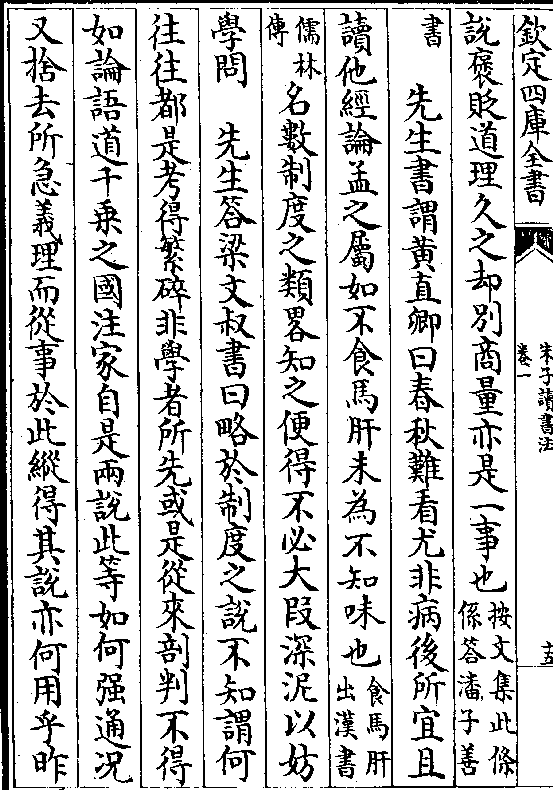 欽定四庫全書
朱子讀書法
卷一
十五
說褒貶道理久之却別商量亦是一事也按文集此條係答潘子善
書　先生書謂黃直卿曰春秋難看尤非病後所宜且
讀他經論孟之屬如不食馬肝未為不知味也食馬肝出漢書
儒林傳名數制度之類畧知之便得不必大段深泥以妨
學問　先生答梁文叔書曰略於制度之說不知謂何
往往都是考得繁碎非學者所先或是從來剖判不得
如論語道千乘之國注家自是兩說此等如何强通況
又捨去所急義理而從事於此縱得其說亦何用乎昨